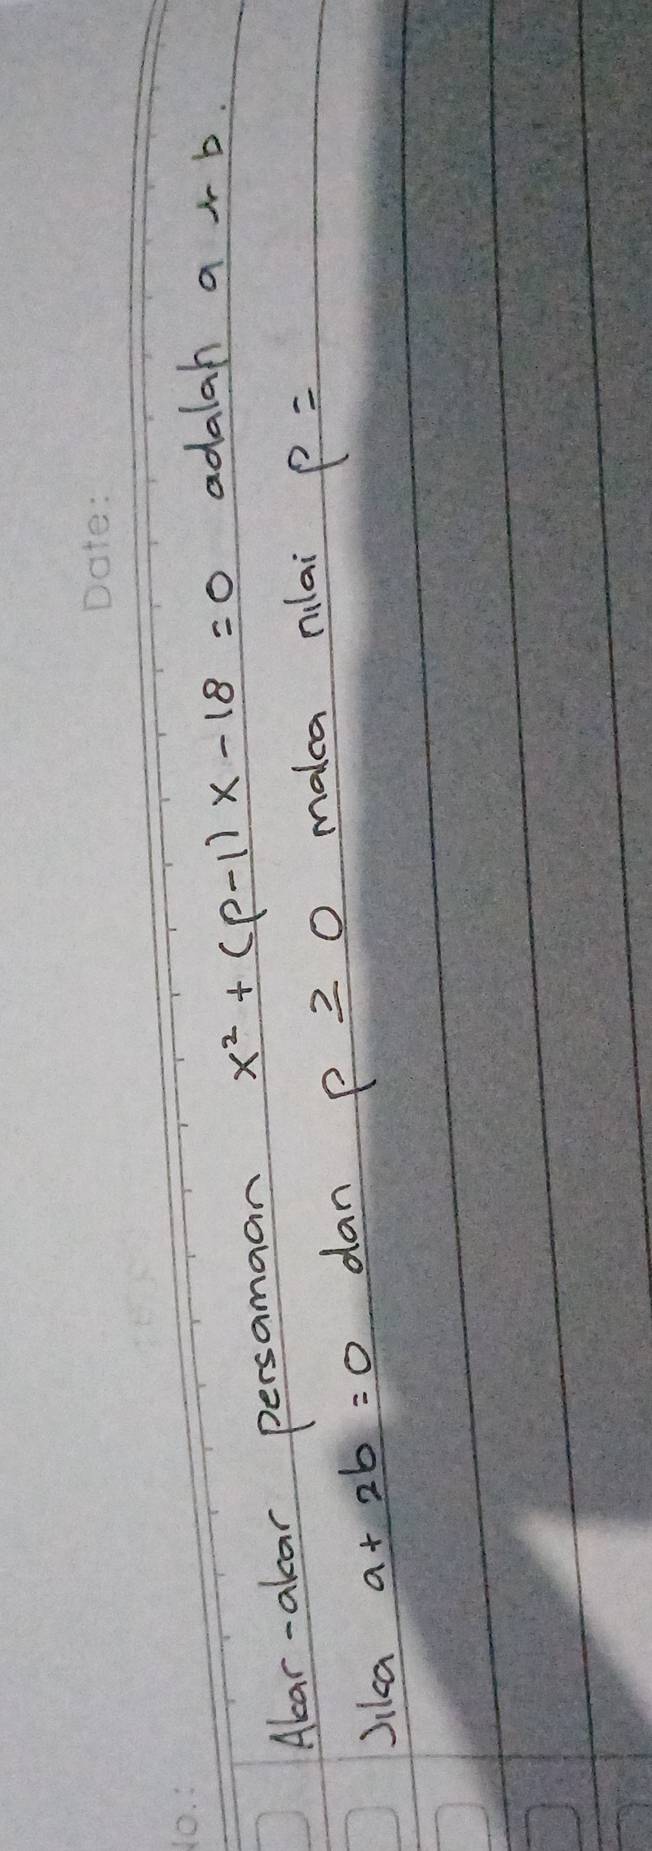 No.:
Date:
Akar-akar persamaan x² + (p-1) x - 18 = 0 adalah a + b.
Jika a + 2b = 0 dan p ≥ 0 maka nilai p =